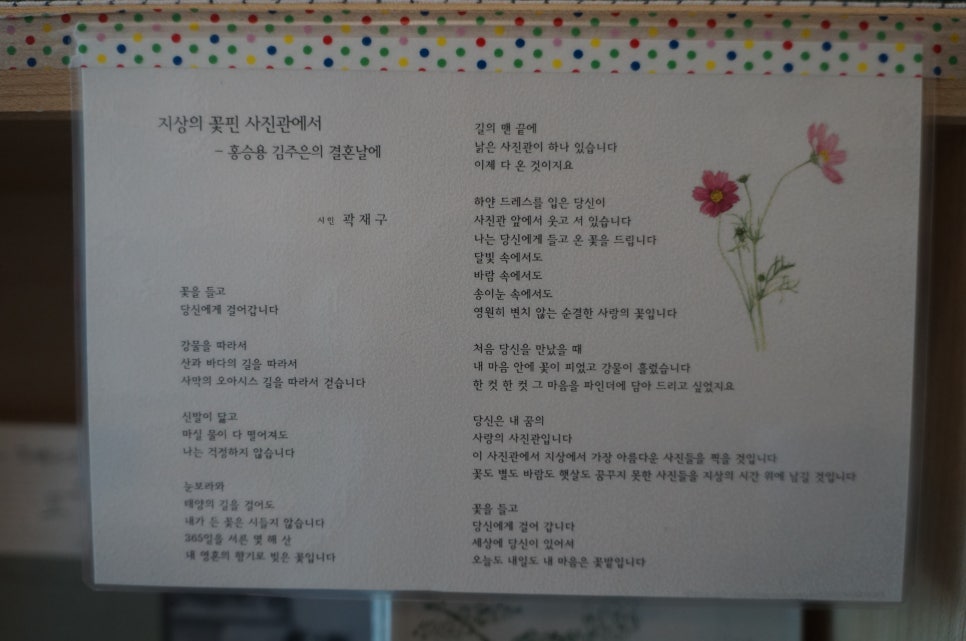 지상의 꽃핀 사진관에서
- 홍승용 김주은의 결혼날에
시인 곽재구
꽃을 들고
당신에게 걸어갑니다
강물을 따라서
산과 바다의 길을 따라서
사막의 오아시스 길을 따라서 걷습니다
신발이 닳고
마실 물이 다 떨어져도
나는 걱정하지 않습니다
눈보라와
태양의 길을 걸어도
내가 든 꽃은 시들지 않습니다
365일을 서른 몇 해 산
내 영혼의 향기로 빚은 꽃입니다
길의 맨 끝에
낡은 사진관이 하나 있습니다
이제 다 온 것이지요
하얀 드레스를 입은 당신이
사진관 앞에서 웃고 서 있습니다
나는 당신에게 들고 온 꽃을 드립니다
달빛 속에서도
바람 속에서도
송이눈 속에서도
영원히 변치 않는 순결한 사랑의 꽃입니다
처음 당신을 만났을 때
내 마음 안에 꽃이 피었고 강물이 흘렀습니다
한 컷 한 컷 그 마음을 파인더에 담아 드리고 싶었지요
당신은 내 꿈의
사랑의 사진관입니다
이 사진관에서 지상에서 가장 아름다운 사진들을 찍을 것입니다
꽃도 별도 바람도 햇살도 꿈꾸지 못한 사진들을 지상의 시간 위에 남길 것입니다
꽃을 들고
당신에게 걸어 갑니다
세상에 당신이 있어서
오늘도 내일도 내 마음은 꽃밭입니다